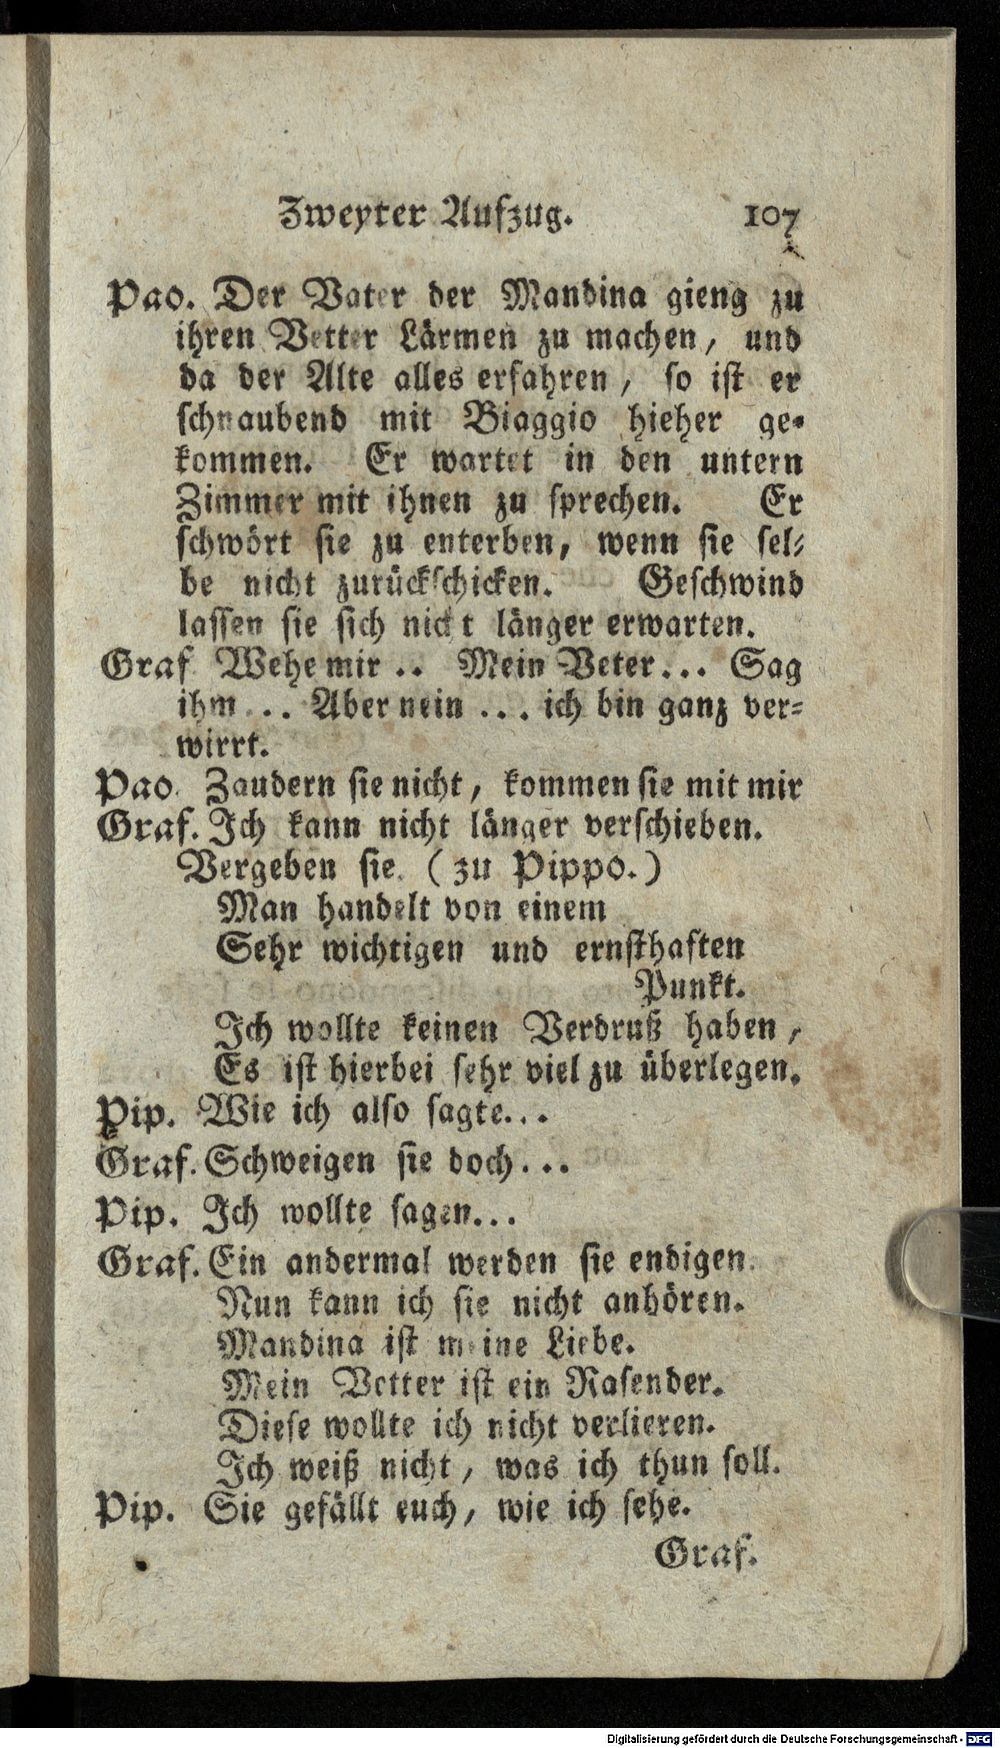 Zweyter Aufzug. 107
Pao. Der Vater der Mandina gieng zu
ihren Vetter Lärmen zu machen, und
da der Alte alles erfahren, so ist er
schnaubend mit Biaggio hieher ge-
kommen. Er wartet in den untern
Zimmer mit ihnen zu sprechen. Er
schwört sie zu enterben, wenn sie sel-
be nicht zurückschicken. Geschwind
lassen sie sich nicht länger erwarten.
Graf Wehe mir .. Mein Veter... Sag
ihm ... Aber nein ... ich bin ganz ver-
wirrt.
Pao. Zaudern sie nicht, kommen sie mit mir
Graf. Ich kann nicht länger verschieben.
Vergeben sie. (zu Pippo.)
Man handelt von einem
Sehr wichtigen und ernsthaften
Punkt.
Ich wollte keinen Verdruß haben,
Es ist hierbei sehr viel zu überlegen.
Pip. Wie ich also sagte...
Graf. Schweigen sie doch...
Pip. Ich wollte sagen...
Graf. Ein andermal werden sie endigen.
Nun kann ich sie nicht anhören.
Mandina ist meine Liebe.
Mein Vetter ist ein Rasender.
Diese wollte ich nicht verlieren.
Ich weiß nicht, was ich thun soll.
Pip. Sie gefällt euch, wie ich sehe.
Graf.
Digitalisierung gefördert durch die Deutsche Forschungsgemeinschaft - DFG